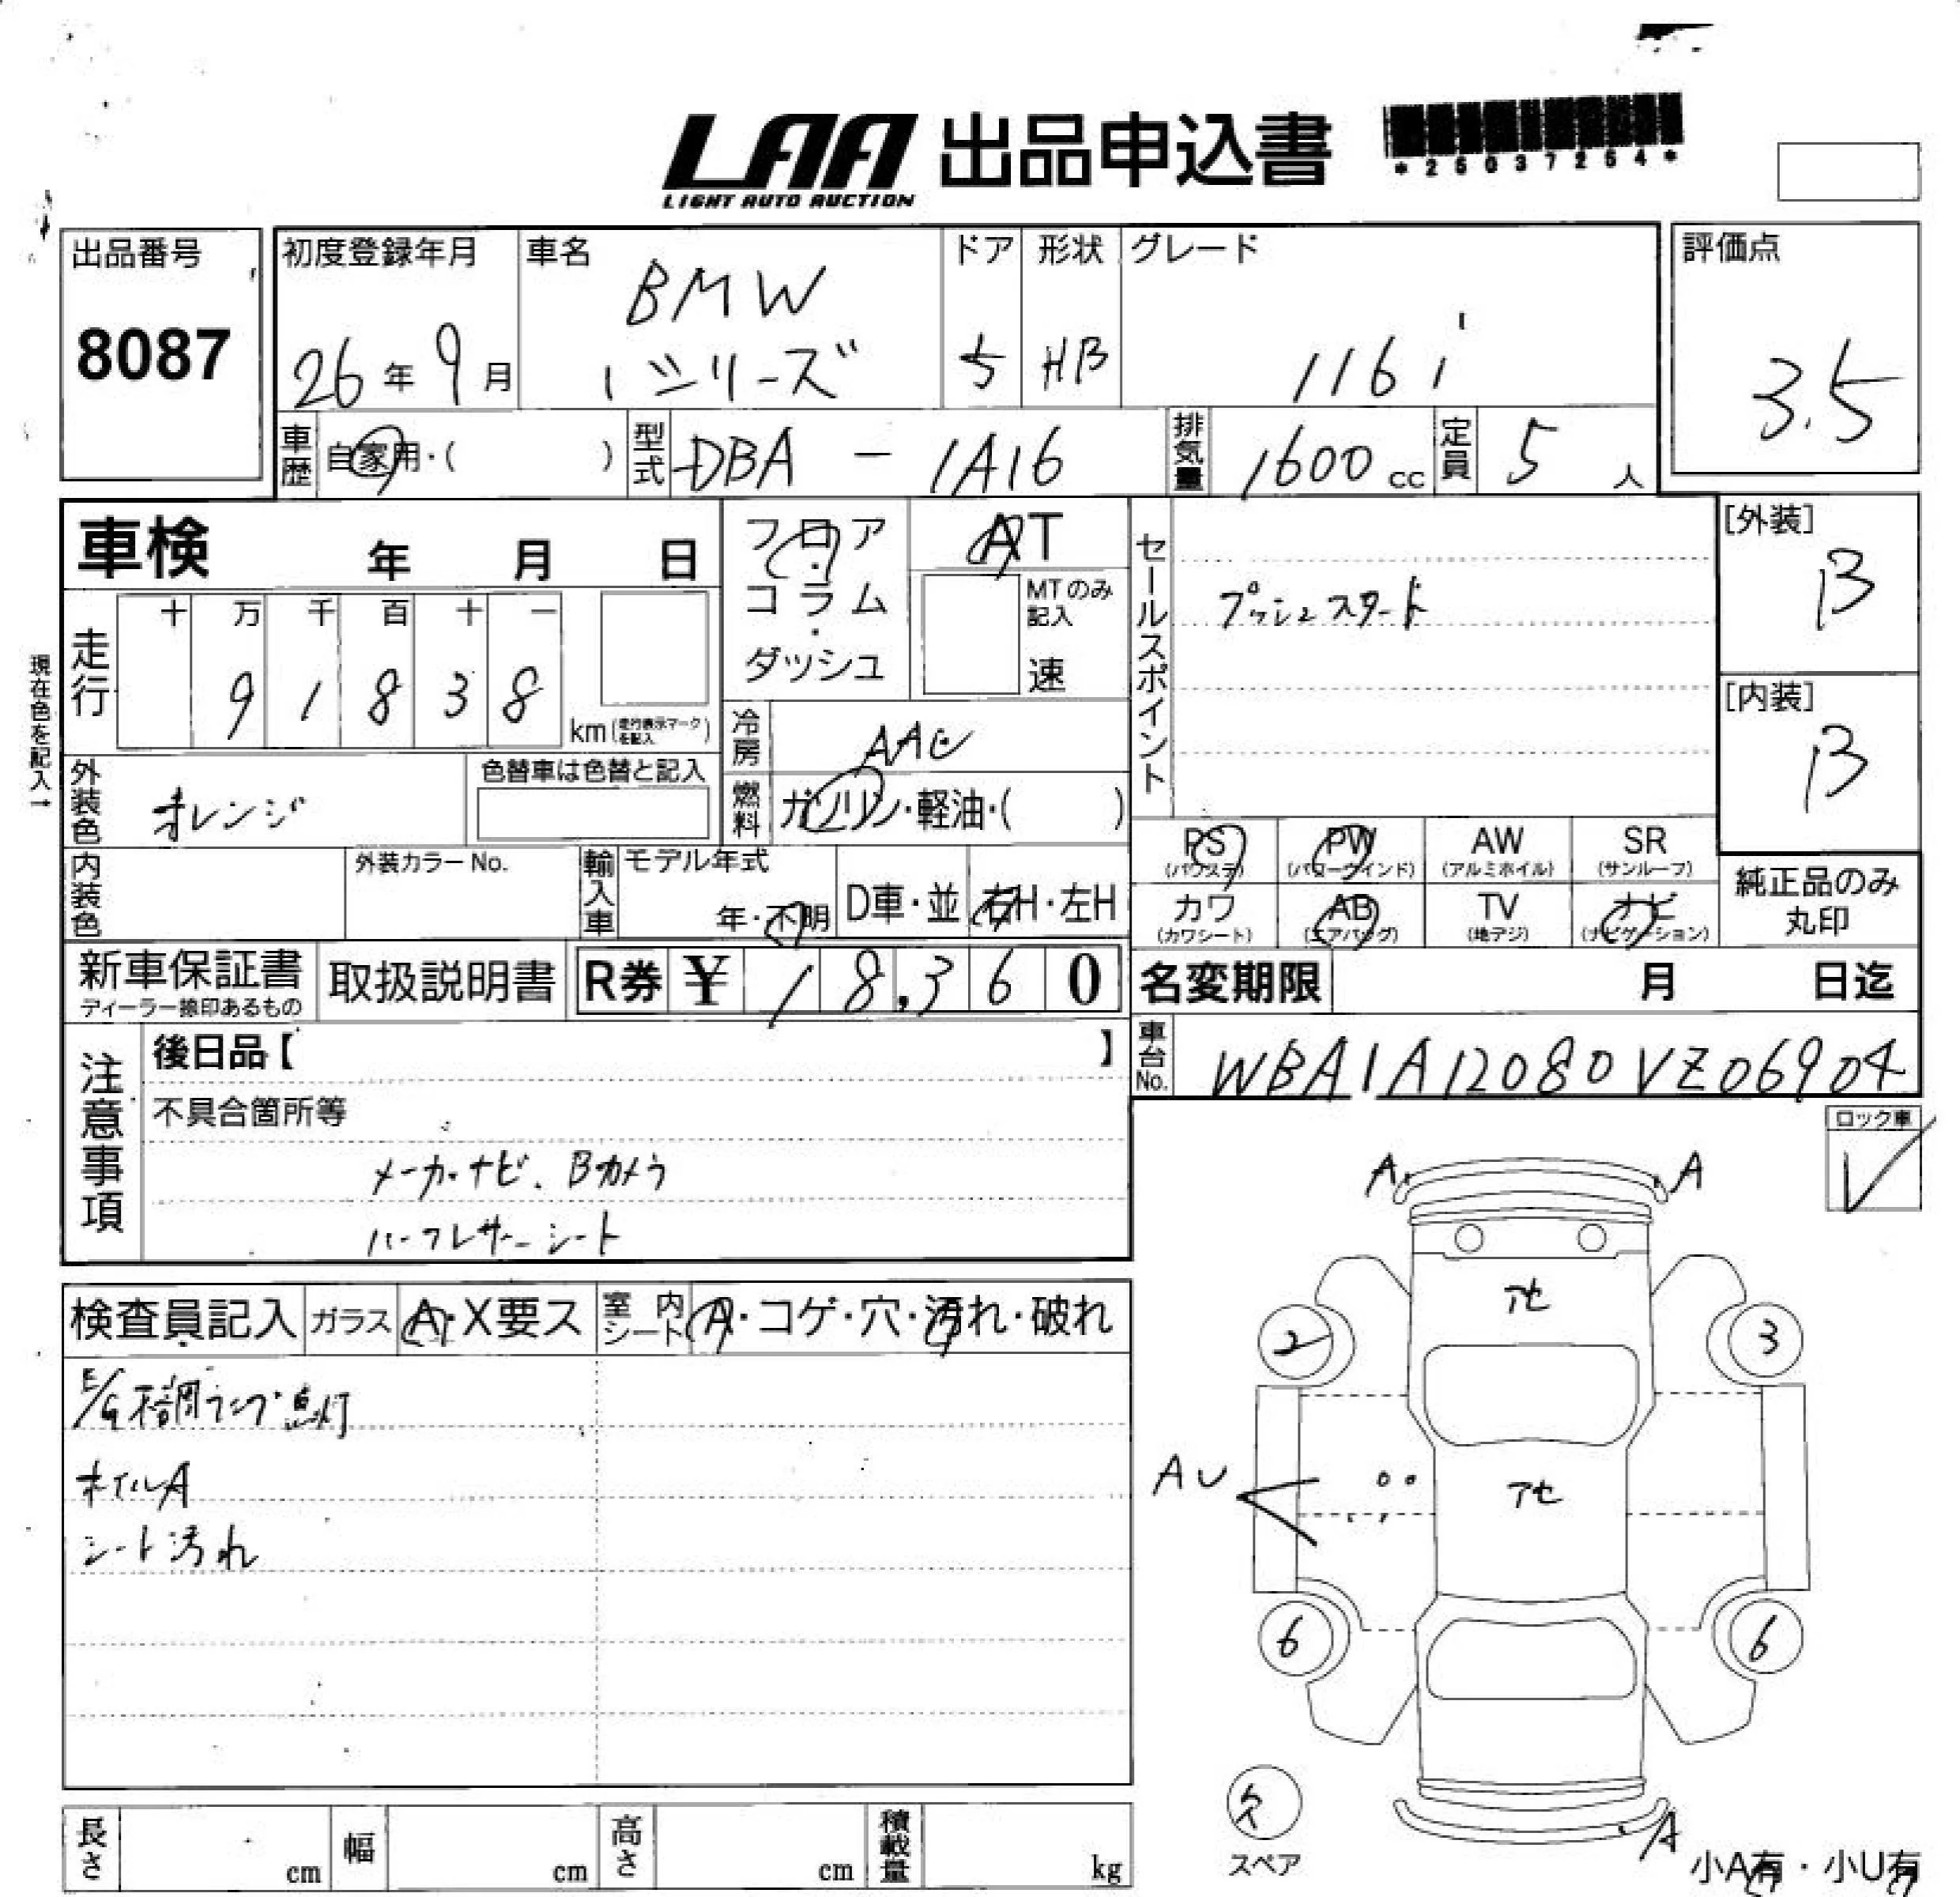 LAA 出品申込書
LIGHT AUTO AUCTION
*26037254*
出品番号
8087
初度登録年月
26年9月
車名
BMW
1シリーズ
ドア
5
形状
HB
グレード
116i
評価点
3.5
車歴 自家用・( )
型式 DBA - 1A16
排気量 1600cc
定員 5人
車検 年 月 日
フロア・コラム・ダッシュ
AT
MTのみ記入
速
セールスポイント
プッシュスタート
[外装]
B
[内装]
B
現在色を記入→
走行
十 万 千 百 十 一
9 1 8 3 8
km(走行表示マークを記入)
冷房 AAC
燃料 ガソリン・軽油・( )
外装色 オレンジ
色替車は色替と記入
内装色
外装カラーNo.
輸入車
モデル年式
年・不明
D車・並
右H・左H
PS (パワステ)
PW (パワーウインド)
AW (アルミホイル)
SR (サンルーフ)
カワ (カワシート)
AB (エアバッグ)
TV (地デジ)
ナビ (ナビゲーション)
純正品のみ丸印
新車保証書
ディーラー捺印あるもの
取扱説明書
R券 ¥ 18,360
名変期限 月 日迄
車台No. WBA1A12080VZ06904
注意事項
後日品【 】
不具合箇所等
メーカーナビ、Bカメラ
ハーフレザーシート
ロック車
検査員記入
ガラス A・X要ス
室内シート A・コゲ・穴・汚れ・破れ
E/G不調ランプ点灯
ホイルA
シート汚れ
A A
アセ
2 3
AU
アセ
6 6
欠
スペア
A
小A有・小U有
長さ cm
幅 cm
高さ cm
積載量 kg